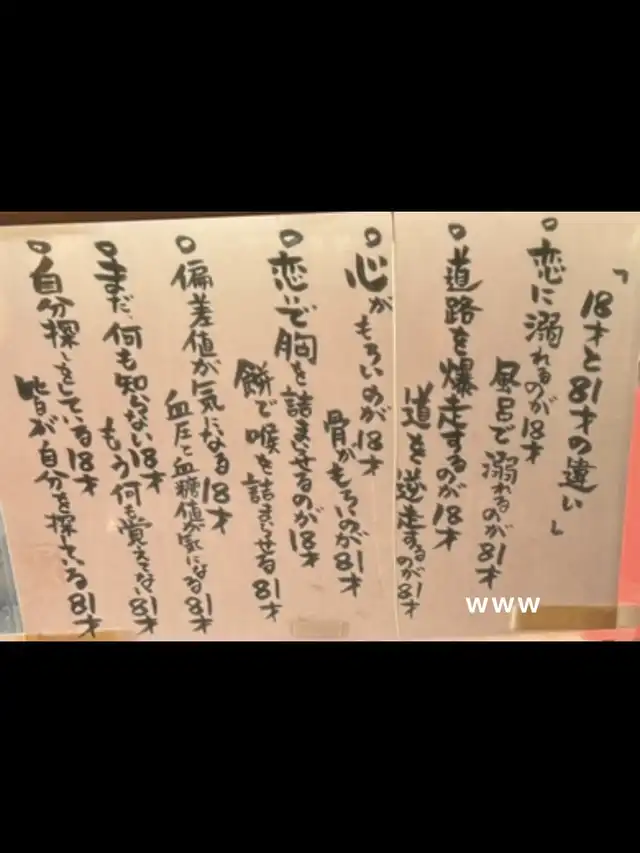 「18才と81才の違い」
○恋に溺れるのが18才
風呂で溺れるのが81才
○道路を爆走するのが18才
道を逆走するのが81才
○心がもろいのが18才
骨がもろいのが81才
○恋で胸を詰まらせるのが18才
餅で喉を詰まらせる81才
○偏差値が気になる18才
血圧と血糖値が気になる81才
○まだ何も知らない18才
もう何も覚えてない81才
○自分探しをしている18才
皆が自分を探している81才
www